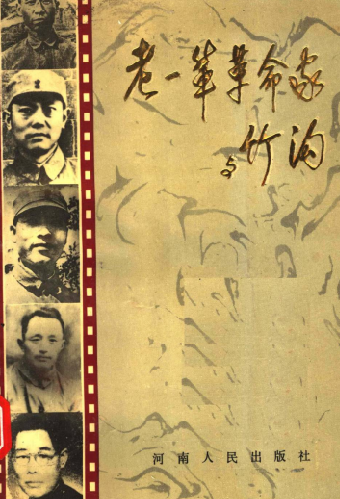 老一辈革命家
与竹沟
河南人民出版社